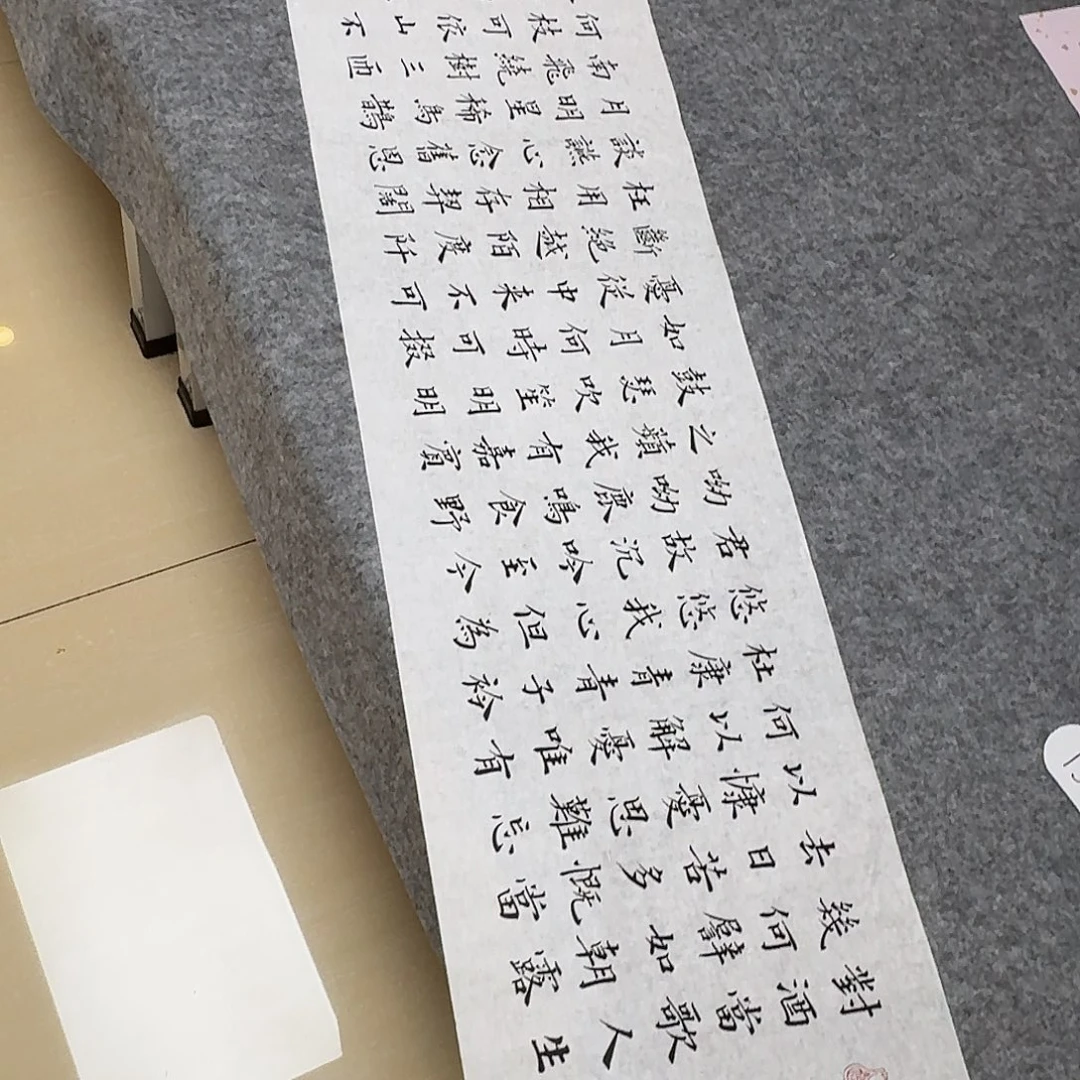 對酒當歌人生
幾何譬如朝露
去日苦多慨當
以慷憂思難忘
何以解憂唯有
杜康青青子衿
悠悠我心但為
君故沉吟至今
呦呦鹿鳴食野
之蘋我有嘉賓
鼓瑟吹笙明明
如月何時可掇
憂從中来不可
斷絶越陌度阡
枉用相存契闊
談讌心念舊恩
月明星稀烏鵲
南飛繞樹三匝
何枝可依山不